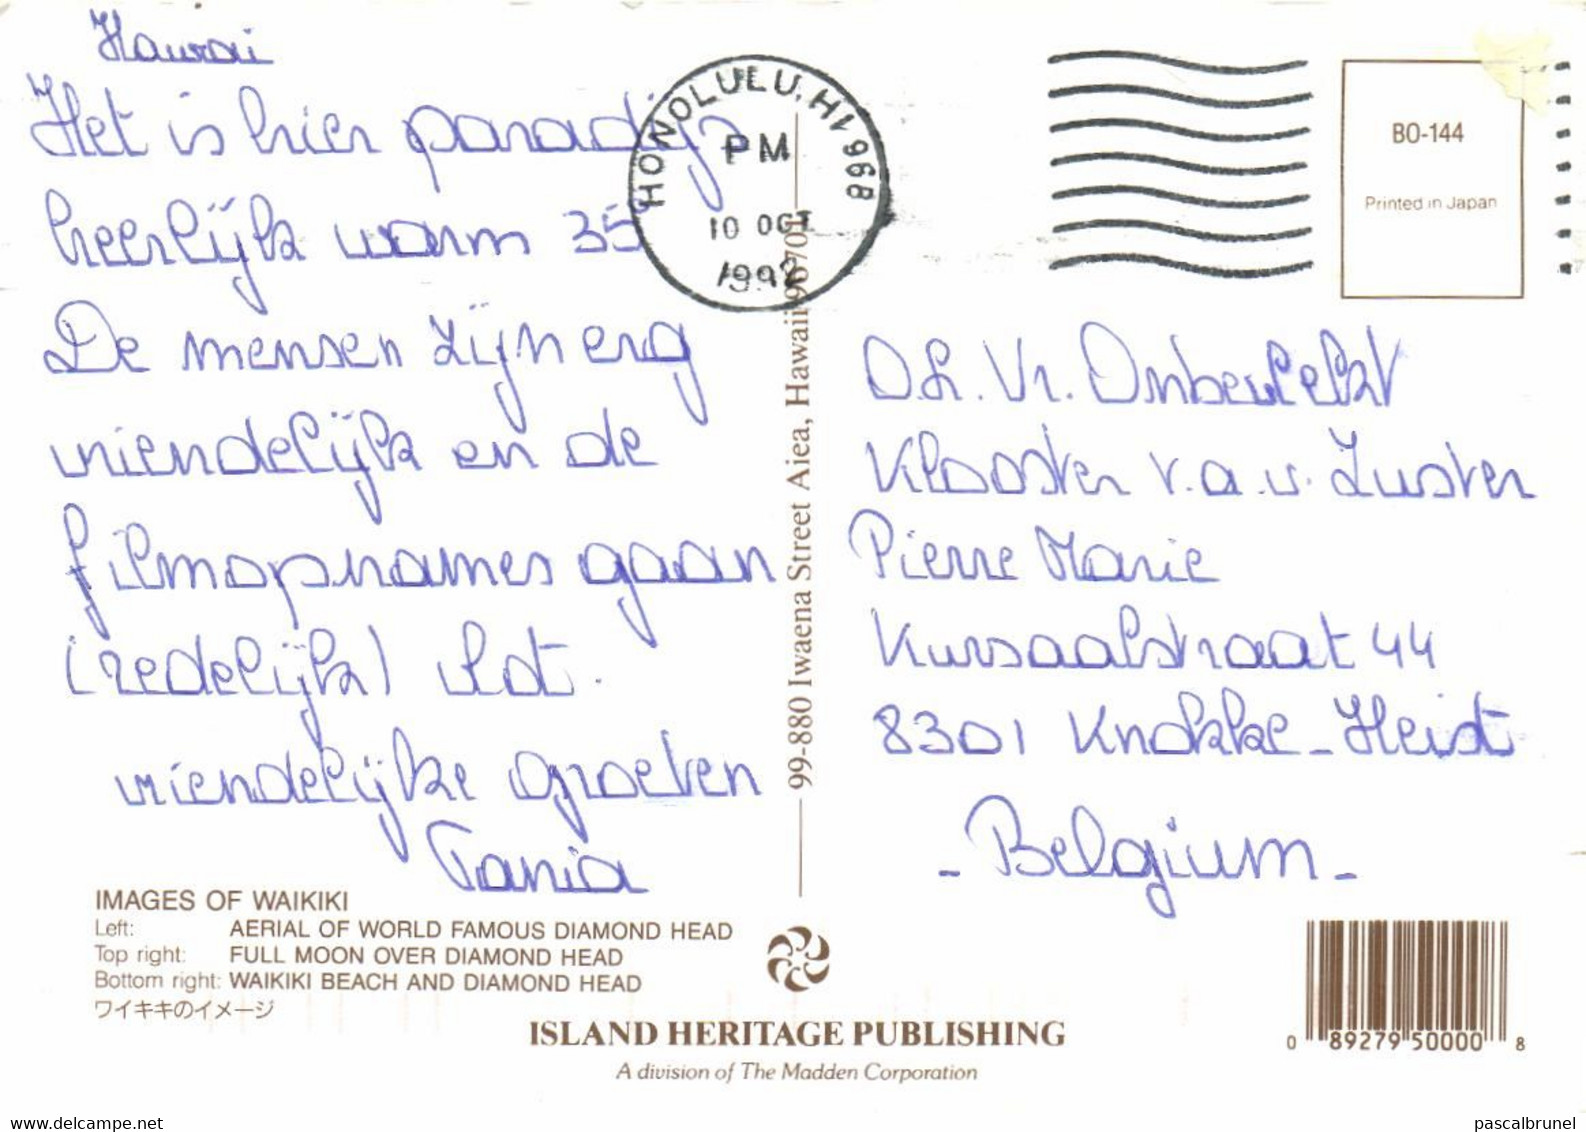 Hawai
Het is hier paradijs
heerlijk warm 35°
De mensen zijn erg
vriendelijk en de
filmopnames gaan
(redelijk) vlot.
vriendelijke groeten
Tania
HONOLULU, HI 968
PM
10 OCT
1992
BO-144
Printed in Japan
O.L. Vr. Onbevlekt
Klooster t.a.v. Zuster
Pierre Marie
Kursaalstraat 44
8301 Knokke-Heist
- Belgium -
99-880 Iwaena Street Aiea, Hawaii 96701
IMAGES OF WAIKIKI
Left: AERIAL OF WORLD FAMOUS DIAMOND HEAD
Top right: FULL MOON OVER DIAMOND HEAD
Bottom right: WAIKIKI BEACH AND DIAMOND HEAD
ワイキキのイメージ
ISLAND HERITAGE PUBLISHING
A division of The Madden Corporation
0 89279 50000 8
www.delcampe.net
pascalbrunel